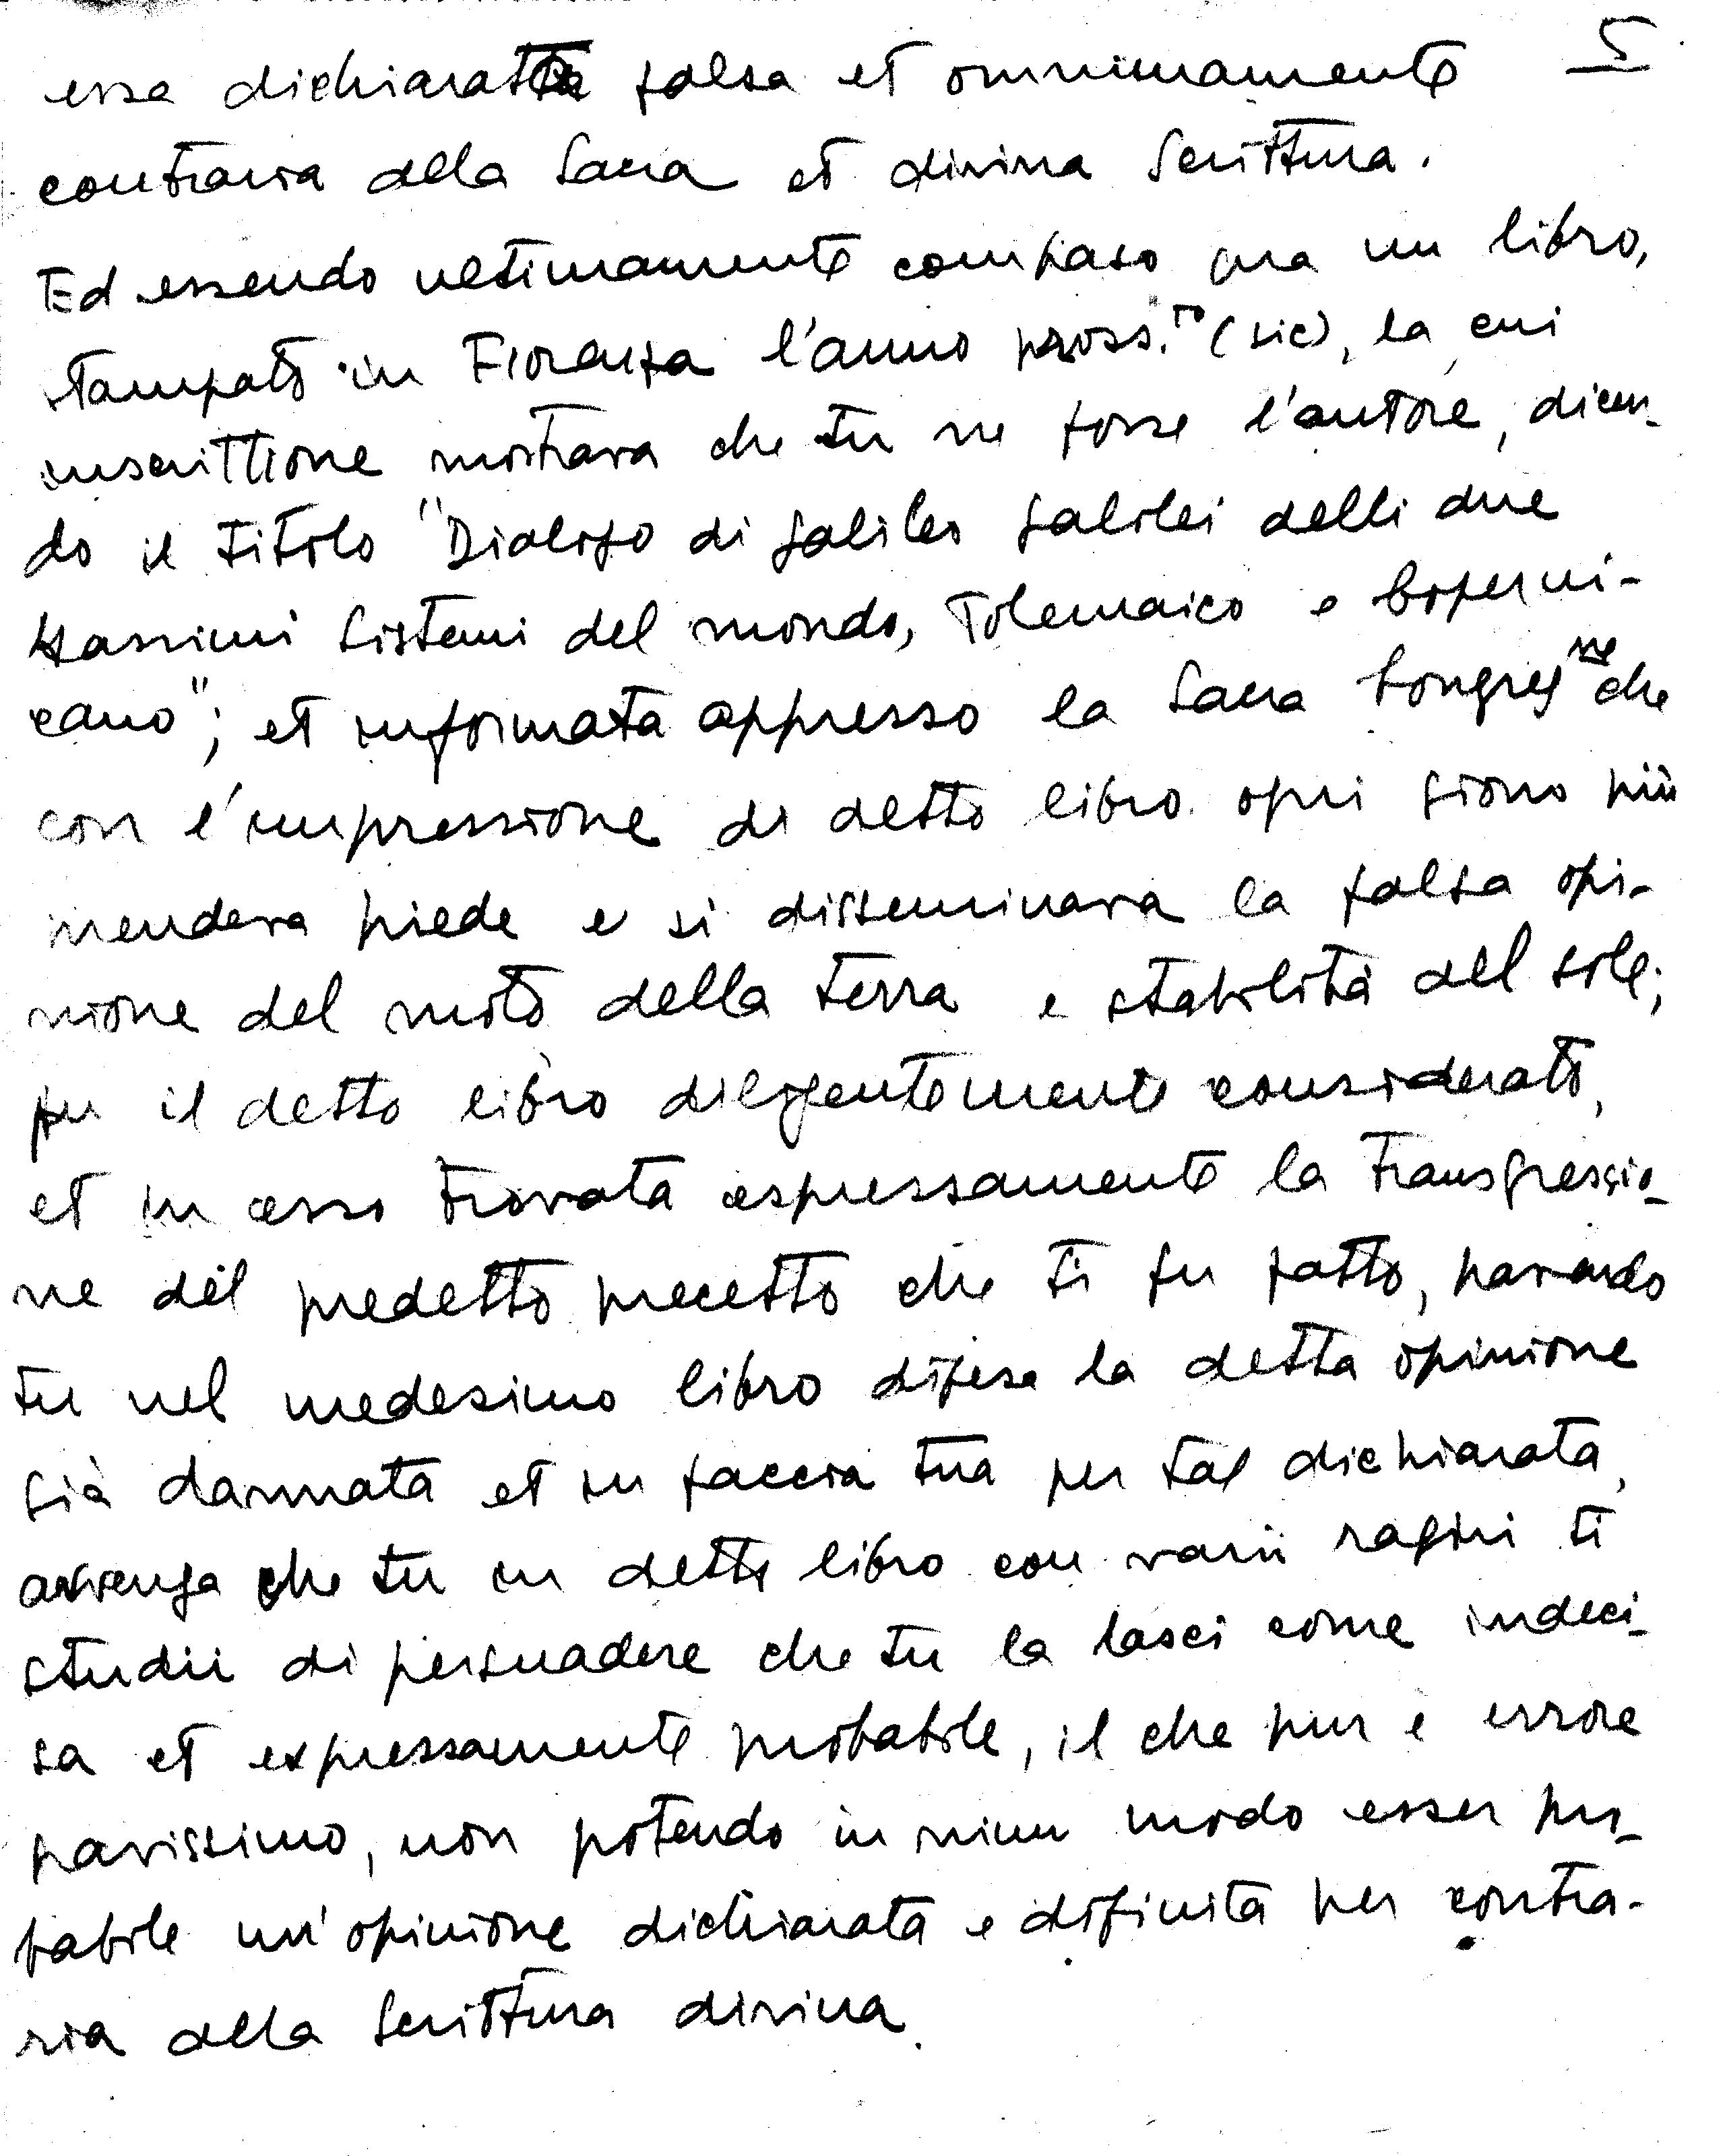 5
essa dichiarata falsa et omninamente
contraria alla Sacra et divina Scrittura.
Ed essendo ultimamente comparso qua un libro,
stampato in Fiorenza l'anno pross.to (sic), la cui
inscrittione mostrava che tu ne fosse l'autore, dicen-
do il titolo "Dialogo di Galileo Galilei delli due
Massimi Sistemi del mondo, Tolemaico e Coperni-
cano"; et informata appresso la Sacra Congreg.ne che
con l'impressione di detto libro ogni giorno più
prendeva piede e si disseminava la falsa opi-
nione del moto della terra e stabilità del sole;
fu il detto libro diligentemente considerato,
et in esso trovata espressamente la transgressio-
ne del predetto precetto che ti fu fatto, havendo
tu nel medesimo libro difesa la detta opinione
già dannata et in faccia tua per tal dichiarata,
avvenga che tu in detto libro con varii ragiri ti
studii di persuadere che tu la lasci come indeci-
sa et expressamente probabile, il che pur è errore
gravissimo, non potendo in niun modo esser pro-
babile un'opinione dichiarata e difinita per contra-
ria alla Scrittura divina.